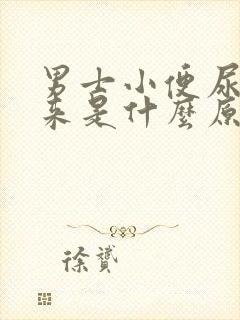 男士小便尿
来是什麼原
徐贇